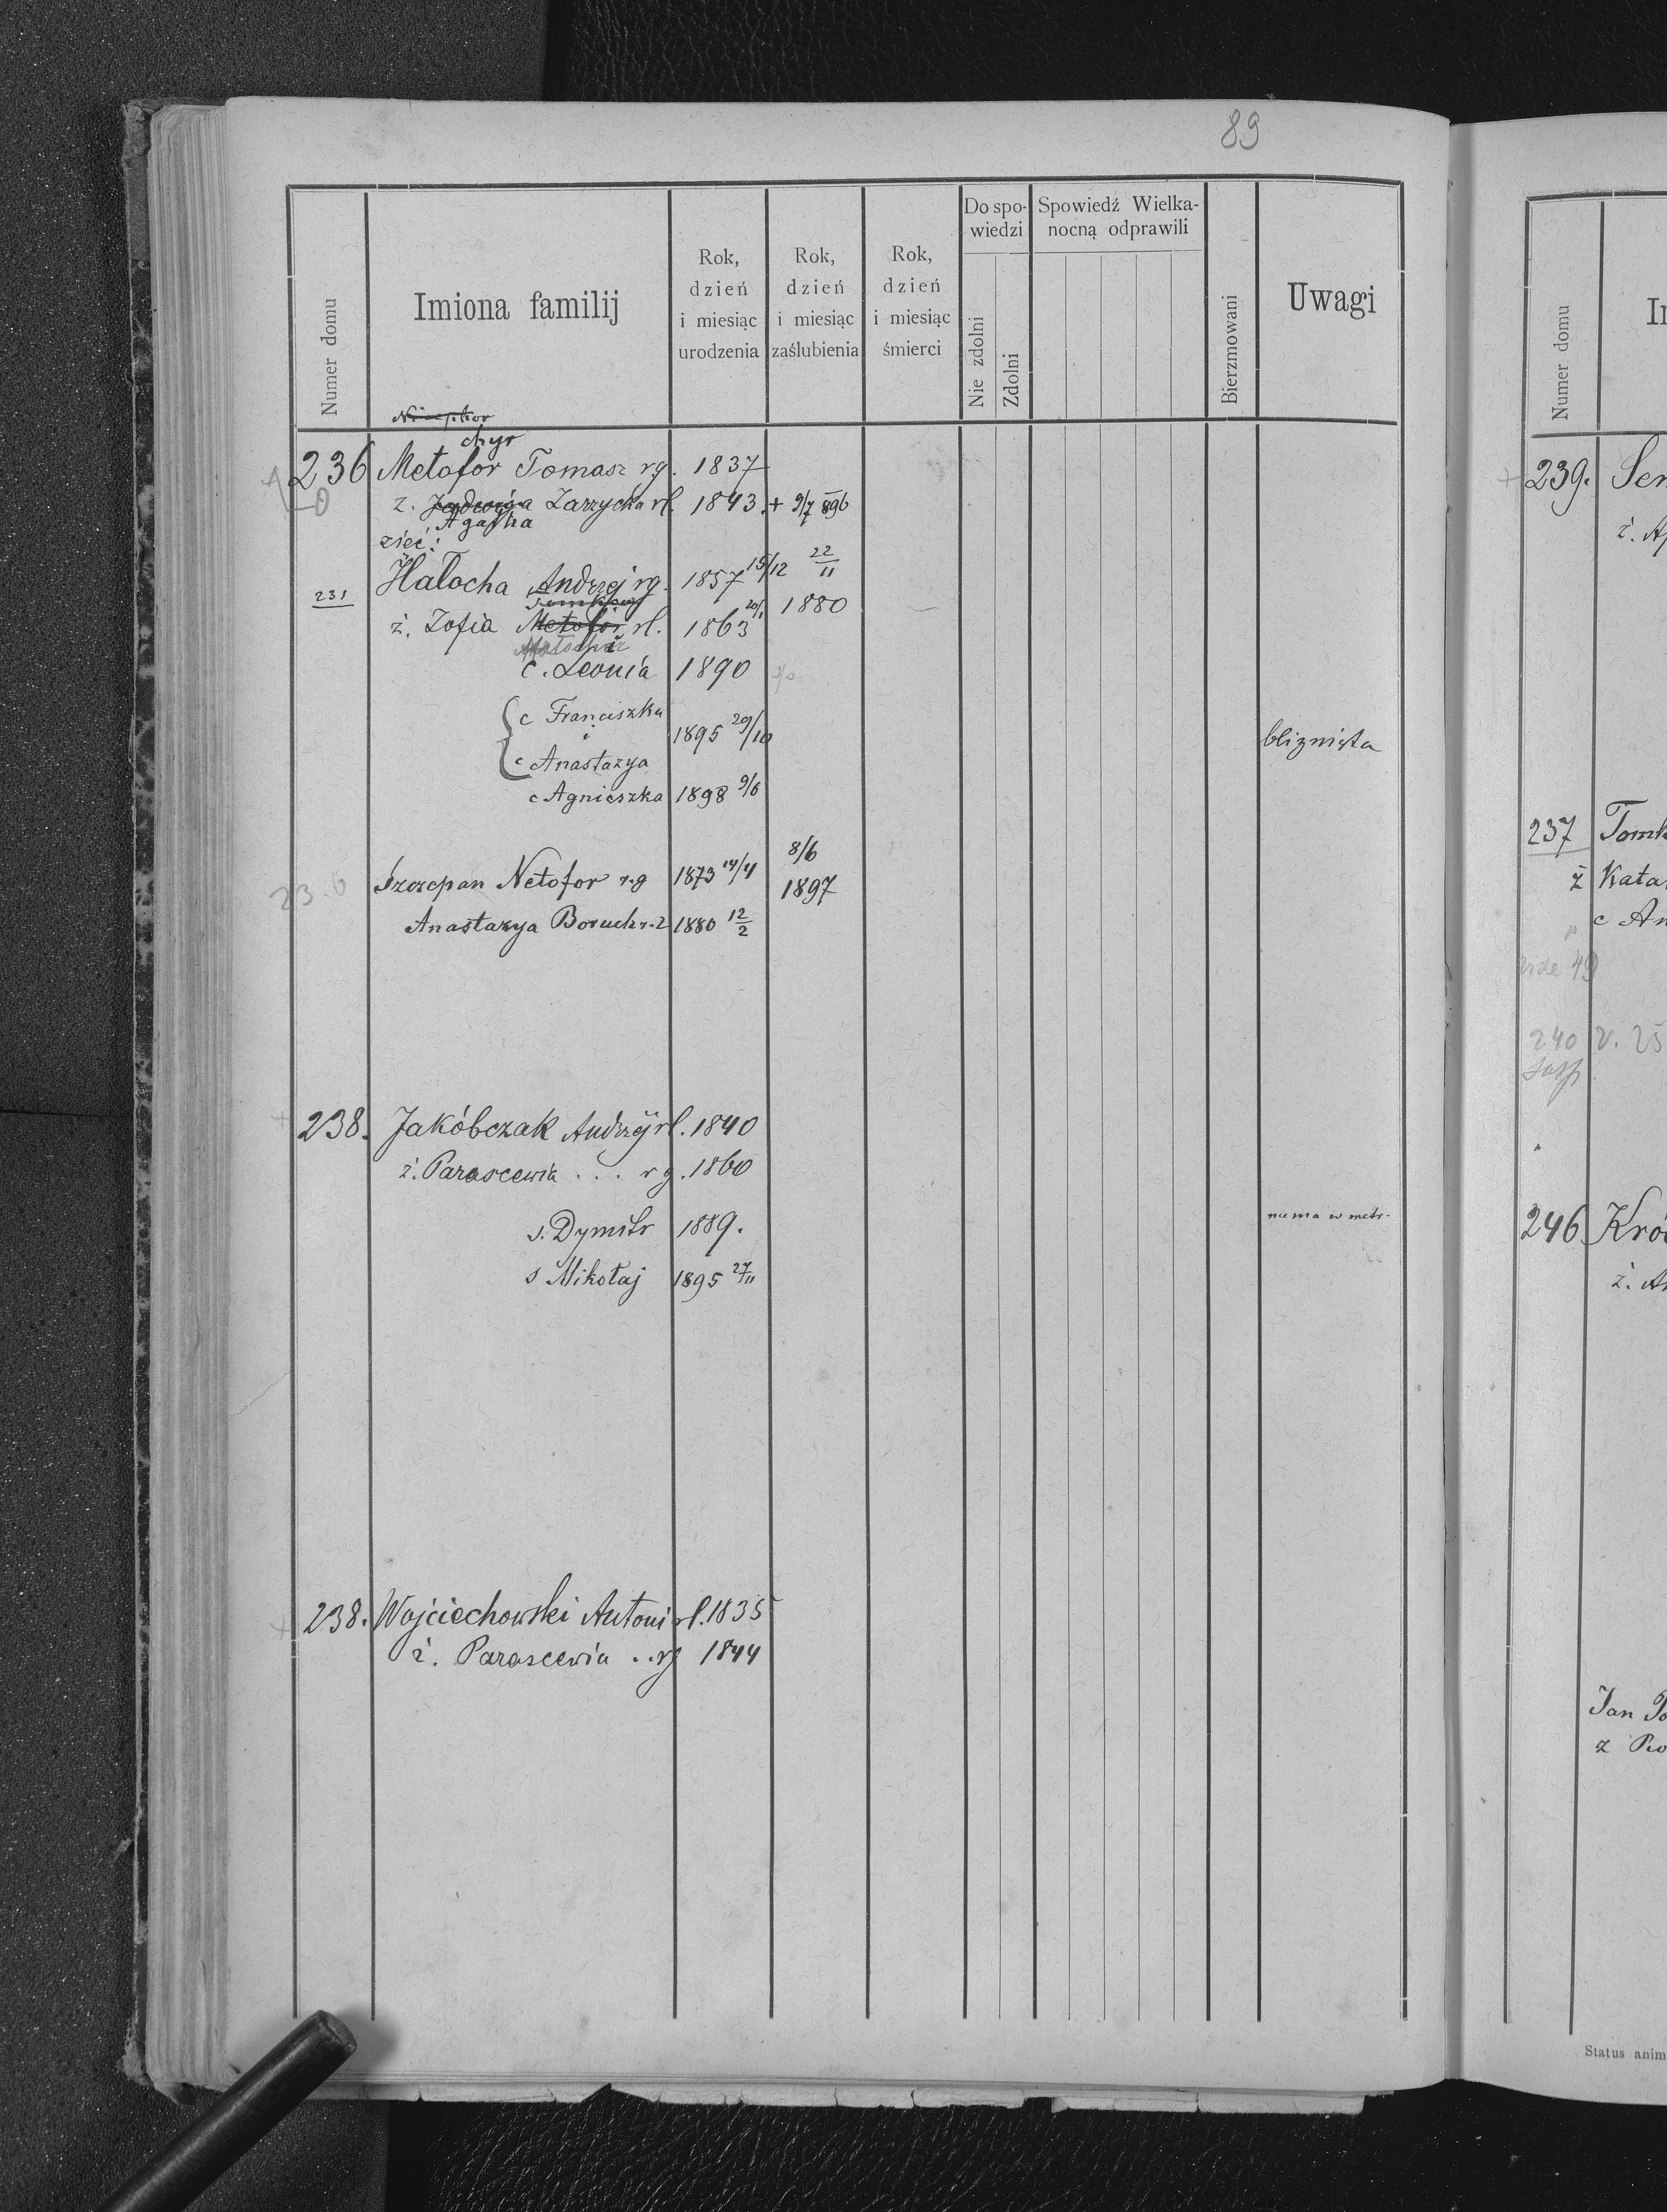 89
Numer domu
Imiona familij
Rok, dzień i miesiąc urodzenia
Rok, dzień i miesiąc zaślubienia
Rok, dzień i miesiąc śmierci
Do spo-wiedzi
Nie zdolni
Zdolni
Spowiedź Wielka-nocną odprawili
Bierzmowani
Uwagi
chyr
236 Metofor Tomasz rg. 1837
ż. Jadwiga Zarzycka rl. 1843. + 9/7 896
Agafia
zięć:
231 Hałocha Andrzej rg. 1857 15/12 22/11
1880
ż. Zofia Metofor rl. 1863 20/1
c. Leonia 1890
c Franciszka
i 1895 29/10 bliznięta
c Anastazya
c Agnieszka 1898 9/6
8/6
236 Szczepan Netofor r.g 1873 14/4 1897
Anastazya Boruch r.l 1880 12/2
238. Jakóbczak Andrzej rl. 1840
ż. Parascewia . . . rg. 1860
s. Dymitr 1889. niema w metr.
s Mikołaj 1895 27/11
238. Wojciechowski Antoni rl. 1835
ż. Parascewia . . rg 1844
Numer domu
239. Sen
ż. Ap
237 Tomk
ż Kata
" c An
vide 49
240 v. 25
246. Kró
ż. An
Jan Po
z Ro
Status anim